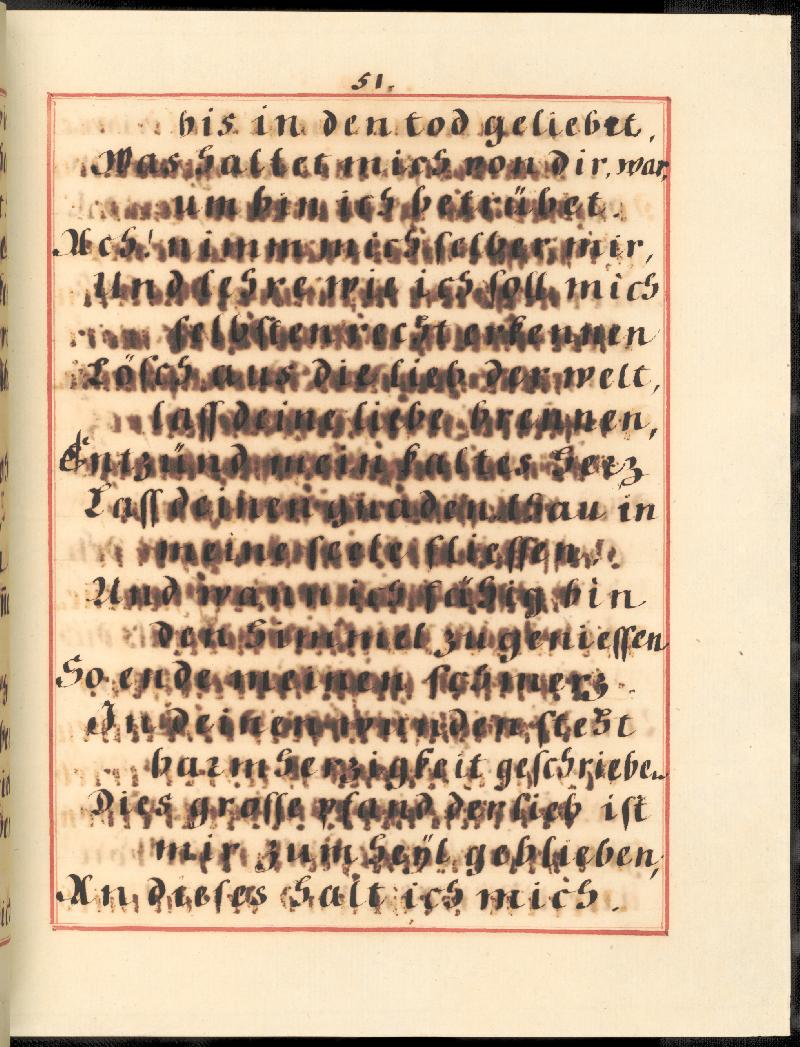 51.
bis in den tod geliebet,
Was haltet mich von dir, war,
um bin ich betrübet.
Ach! nimm mich selber mir,
Und lehre wie ich soll mich
selbsten recht erkennen
Lösch aus die lieb der welt,
lass deine liebe brennen,
Entzünd mein kaltes herz
Lass deinen gnadenthau in
meine seele fliessen,
Und wann ich fähig bin
den himmel zu geniessen
So ende meinen schmerz.
In deinen wunden steht
barmherzigkeit geschrieben
Dies grosse pfand der lieb ist
mir zum heÿl geblieben,
An dieses halt ich mich.